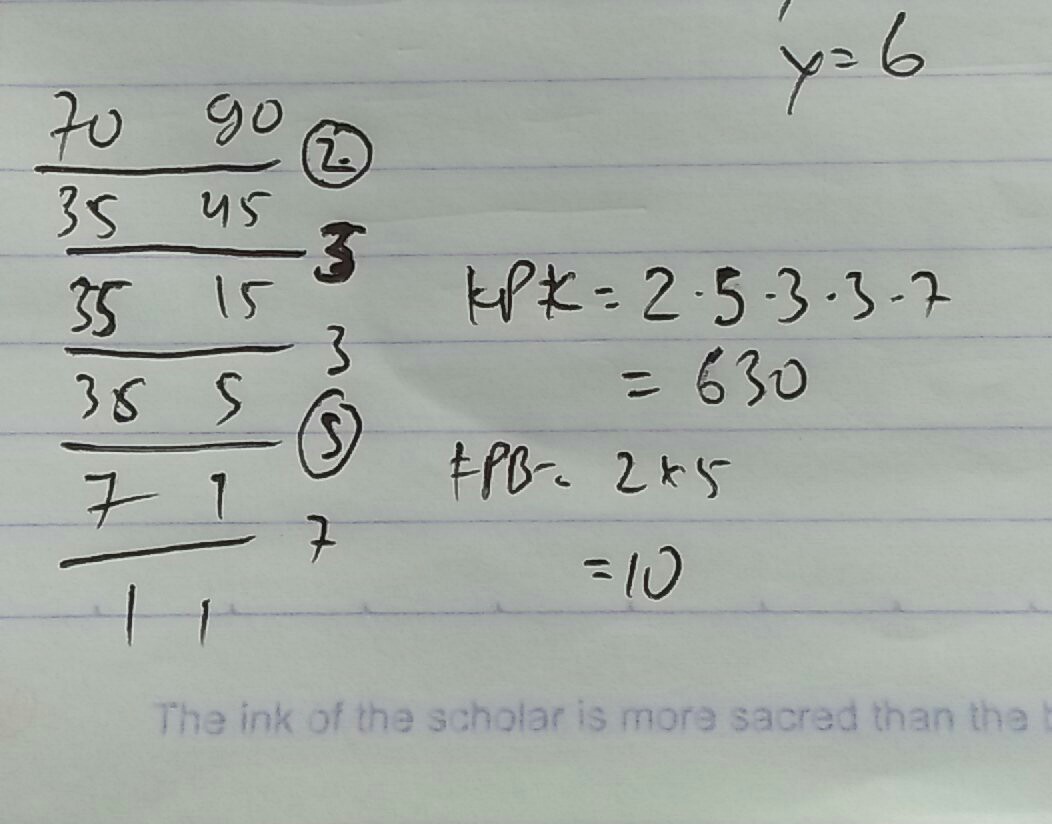 y=6
70 90 2
35 45 3
35 15 3
35 5 5
7 1 7
1 1
KPK = 2·5·3·3·7
= 630
FPB = 2x5
=10
The ink of the scholar is more sacred than the